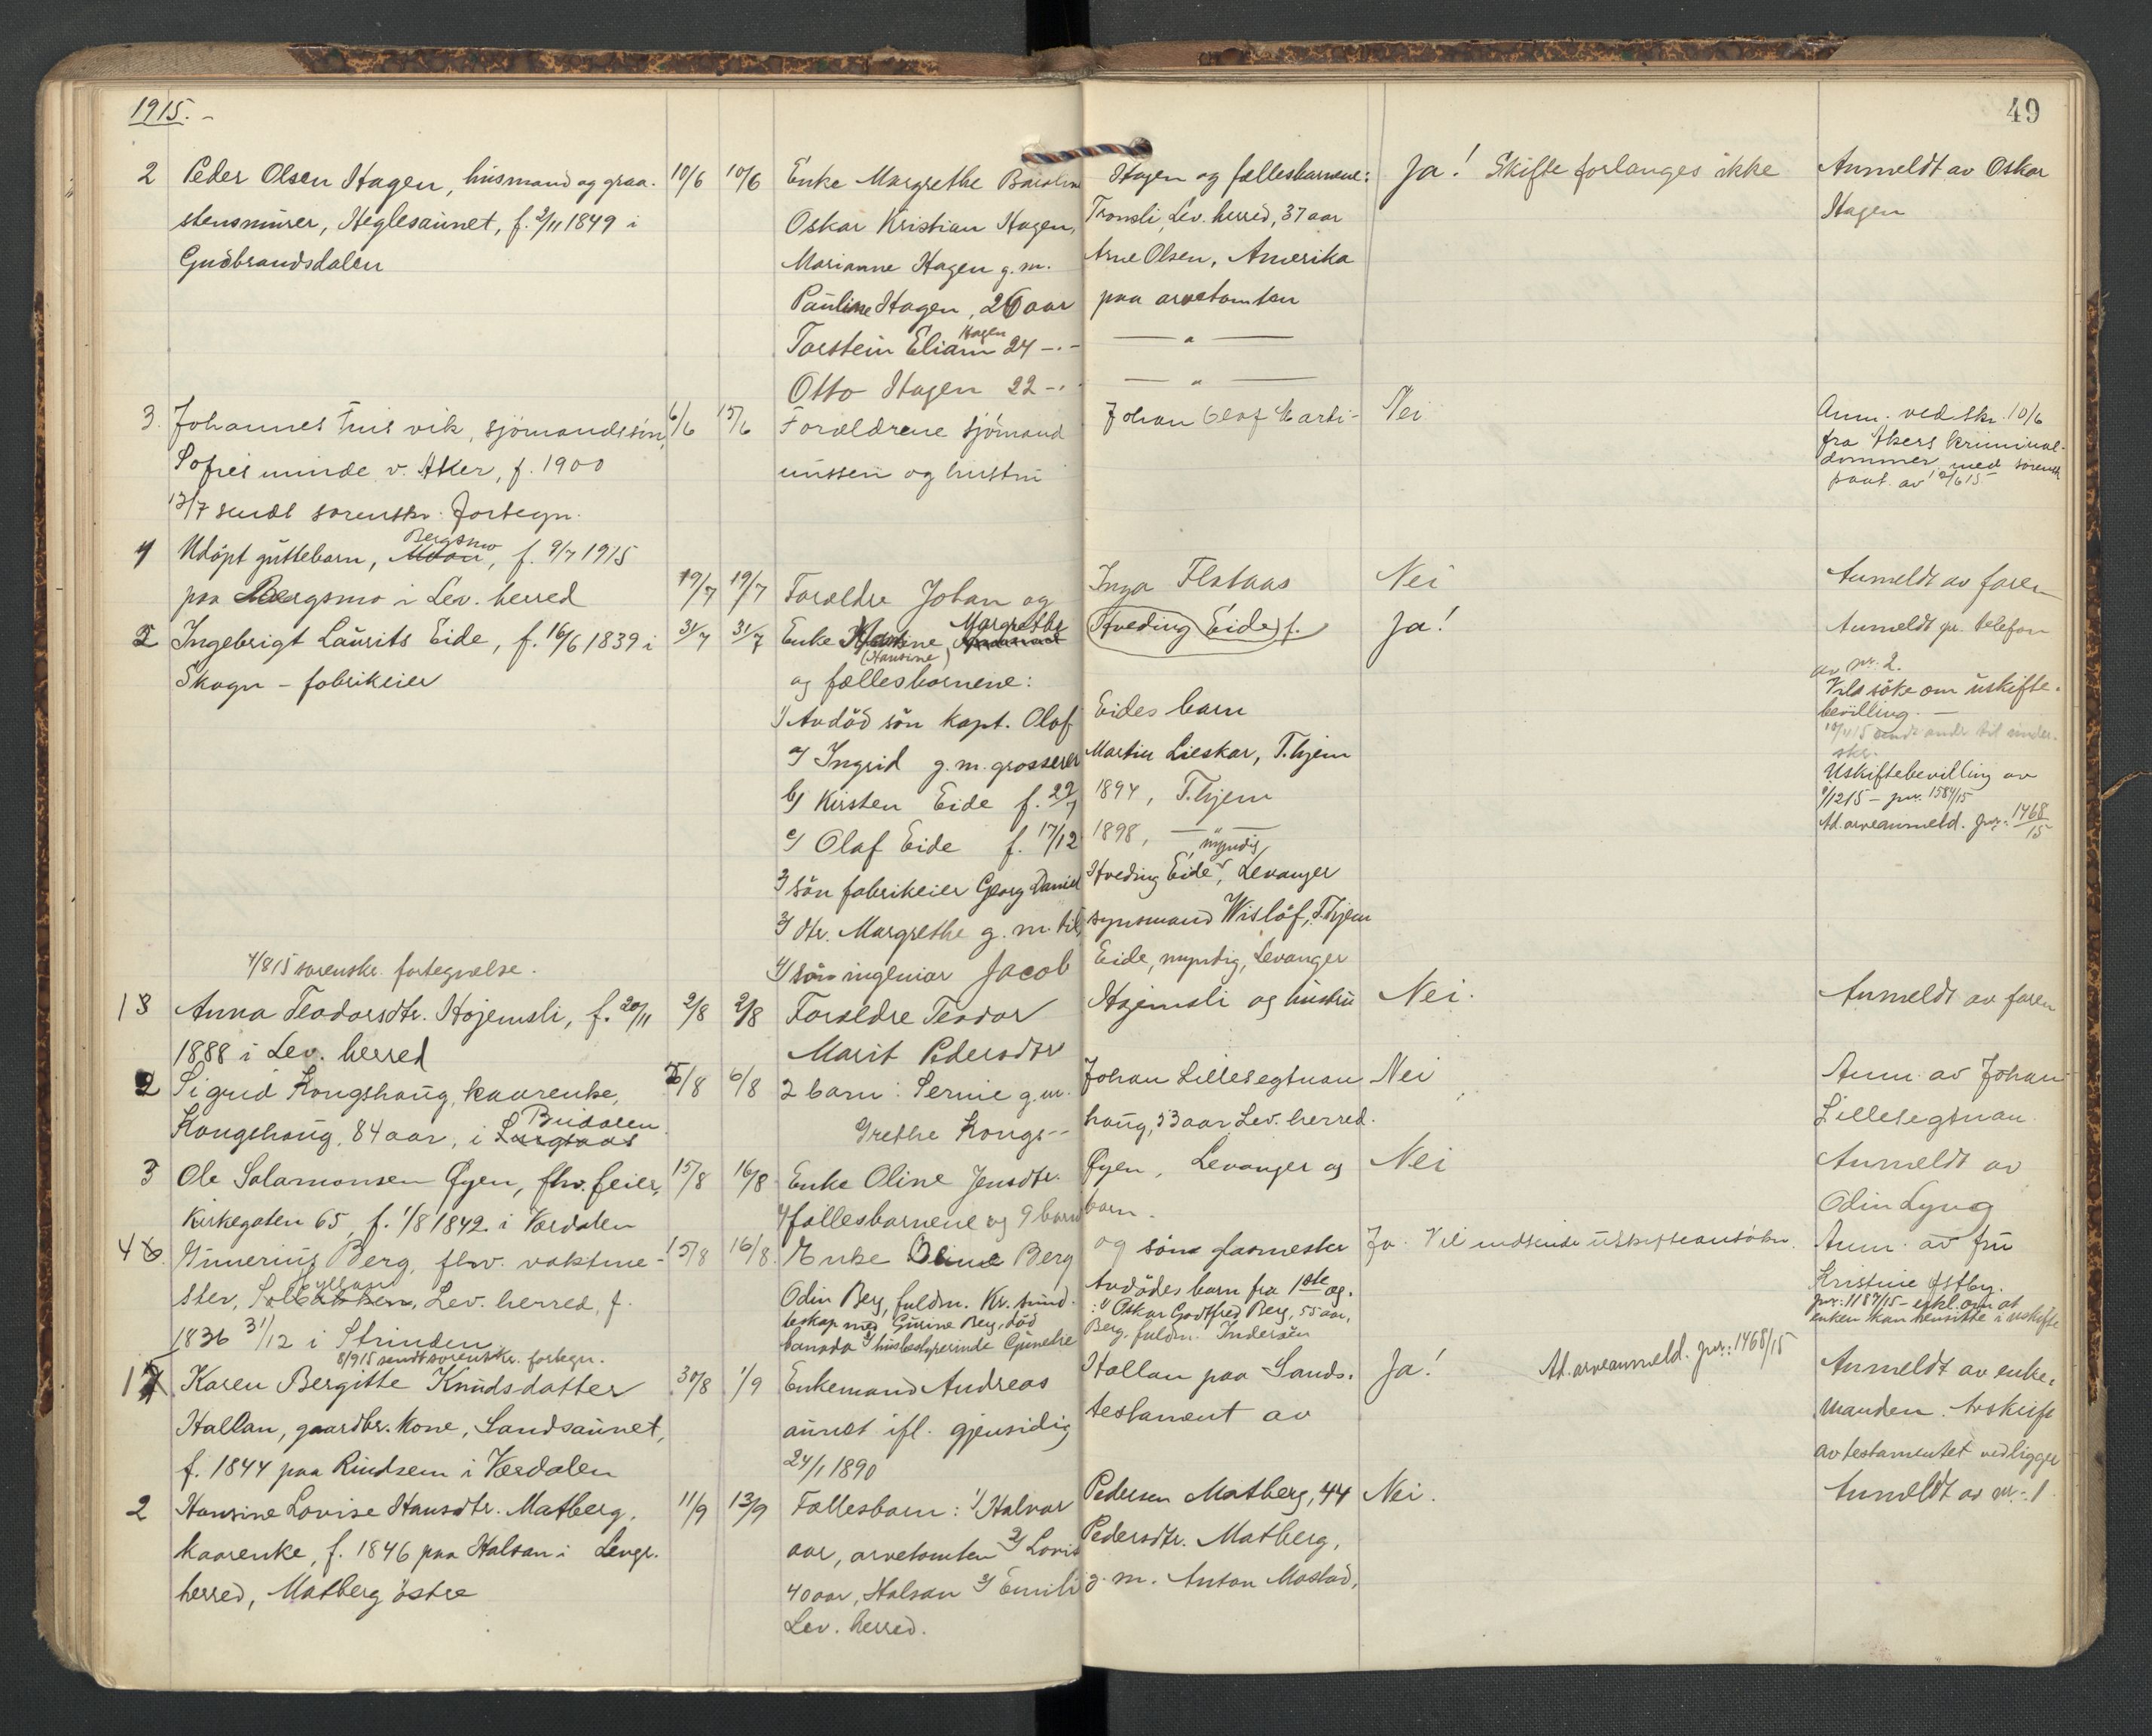 1915. -
49
2 Peder Olsen Hagen, husmand og graa- 10/6 10/6 Enke Margrethe Hagen og fællesbarnene: Ja! Skifte forlanges ikke Anmeldt av Oskar
stensmurer, Heglesaunet, f. 2/11 1849 i Oskar Kristian Hagen, Tronsli, Lev. herred, 37 aar Hagen
Gudbrandsdalen Marianne Hagen g.m. Arne Olsen, Amerika
Pauline Hagen, 26 aar paa arvetomten
Torstein Eliam Hagen 24 -.- — " —
Otto Hagen 22 -.- — " —
3. Johannes vik, sjömandssön, 6/6 15/6 Forældrene sjömand Johan Olaf Marti- Nei Anm. ved skr. 10/6
Sofies minde v. Aker, f. 1900 nussen og hustru fra Akers kriminal-
dommer med sorensk
12/7 sendt sorenskr. fortegn. pant. av 12/6 15
4 Udöpt guttebarn, Bergsmo, f. 9/7 1915
paa Bergsmo i Lev. herred 19/7 19/7 Forældre Johan og Inga Flataas Nei Anmeldt av faren
2 Ingebrigt Laurits Eide, f. 16/6 1839 i 31/7 31/7 Enke Hansine Margrethe Hveding Eide f. Ja! Anmeldt pr. telefon
(Hansine)
Skogn - fabrikeier og fællesbarnene: av nr. 2.
1) Avdöd sön kapt. Olof Eides barn Vil söke om uskifte-
bevilling. —
a) Ingrid g.m. grosserer Martin Lieskar, T.hjem
b) Kirsten Eide f. 22/7 1894, T.hjem Uskiftebevilling av
9/12 15 - jnr. 1584/15
c) Olaf Eide f. 17/12 1898, — " — Ad. arveanmeld. jnr: 1468/15
2) sön fabrikeier Georg Daniel Hveding Eide, myndig, Levanger
3) dtr. Margrethe g.m. til- synsmand Wislöf, T.hjem
4/8 15 sorenskr. fortegnelse. 4) sön ingeniör Jacob Eide, myndig, Levanger
1 Anna Teodorsdtr. Höjemsli, f. 20/11 2/8 2/8 Forældre Teodor Höjemsli og hustru Nei. Anmeldt av faren
1888 i Lev. herred Marit Pedersdtr
2 Sigrid Kongshaug, kaarenke, 5/8 6/8 2 barn: Sernie g.m. Johan Lillesegtnan Nei Anm. av Johan
Kongshaug, 84 aar, i Budalen Grethe Kongs-- haug, 53 aar Lev. herred. Lillesegtnan.
3 Ole Salamonsen Øyen, fhv. feier, 15/8 16/8 Enke Oline Jensdtr. Øyen, Levanger og Nei Anmeldt av
Kirkegaten 65, f. 1/8 1842 i Værdalen 4 fællesbarnene og 9 barnebarn. Odin Lyng
4 Gunerius Berg, fhv. vaktme- 15/8 16/8 Enke Oline Berg og söm glasmester Ja. Vil indsende uskifteansökn. Anm. av fru
ster, Lev. herred, f. Odin Berg, fuldm. Kr.sund. Avdödes barn fra 1ste eg- Kristine Østby.
1836 31/12 i Strinden teskap med Gurine Berg, död: 1) Oskar Godtfred Berg, 55 aar, jnr: 1187/15 - erkl. om at
8/9 15 sendt sorenskr. fortegn. Berg, fuldm. Inderöen enken kan hensitte i uskifte
1 Karen Bergitte Knudsdatter 30/8 1/9 Enkemand Andreas Hallan paa Sands- Ja! Ad. arveanmeld. jnr: 1468/15 Anmeldt av enke-
Hallan, gaardbr. kone, Sandsaunet, aunet ifl. gjensidig testament av manden. Avskrift
f. 1844 paa Rindsem i Værdalen 24/1 1890 av testamentet vedligger
2 Hansine Lovise Hansdtr. Matberg, 11/9 13/9 Fællesbarn: 1) Halvor Pedersen Matberg, 44 Nei. Anmeldt av nr. 1.
kaarenke, f. 1846 paa Halsan i Levgr. aar, arvetomten 2) Lovise Pedersdtr. Matberg,
herred, Matberg östre 40 aar, Halsan 3) Emilie g.m. Anton Mostad,
Lev. herred.